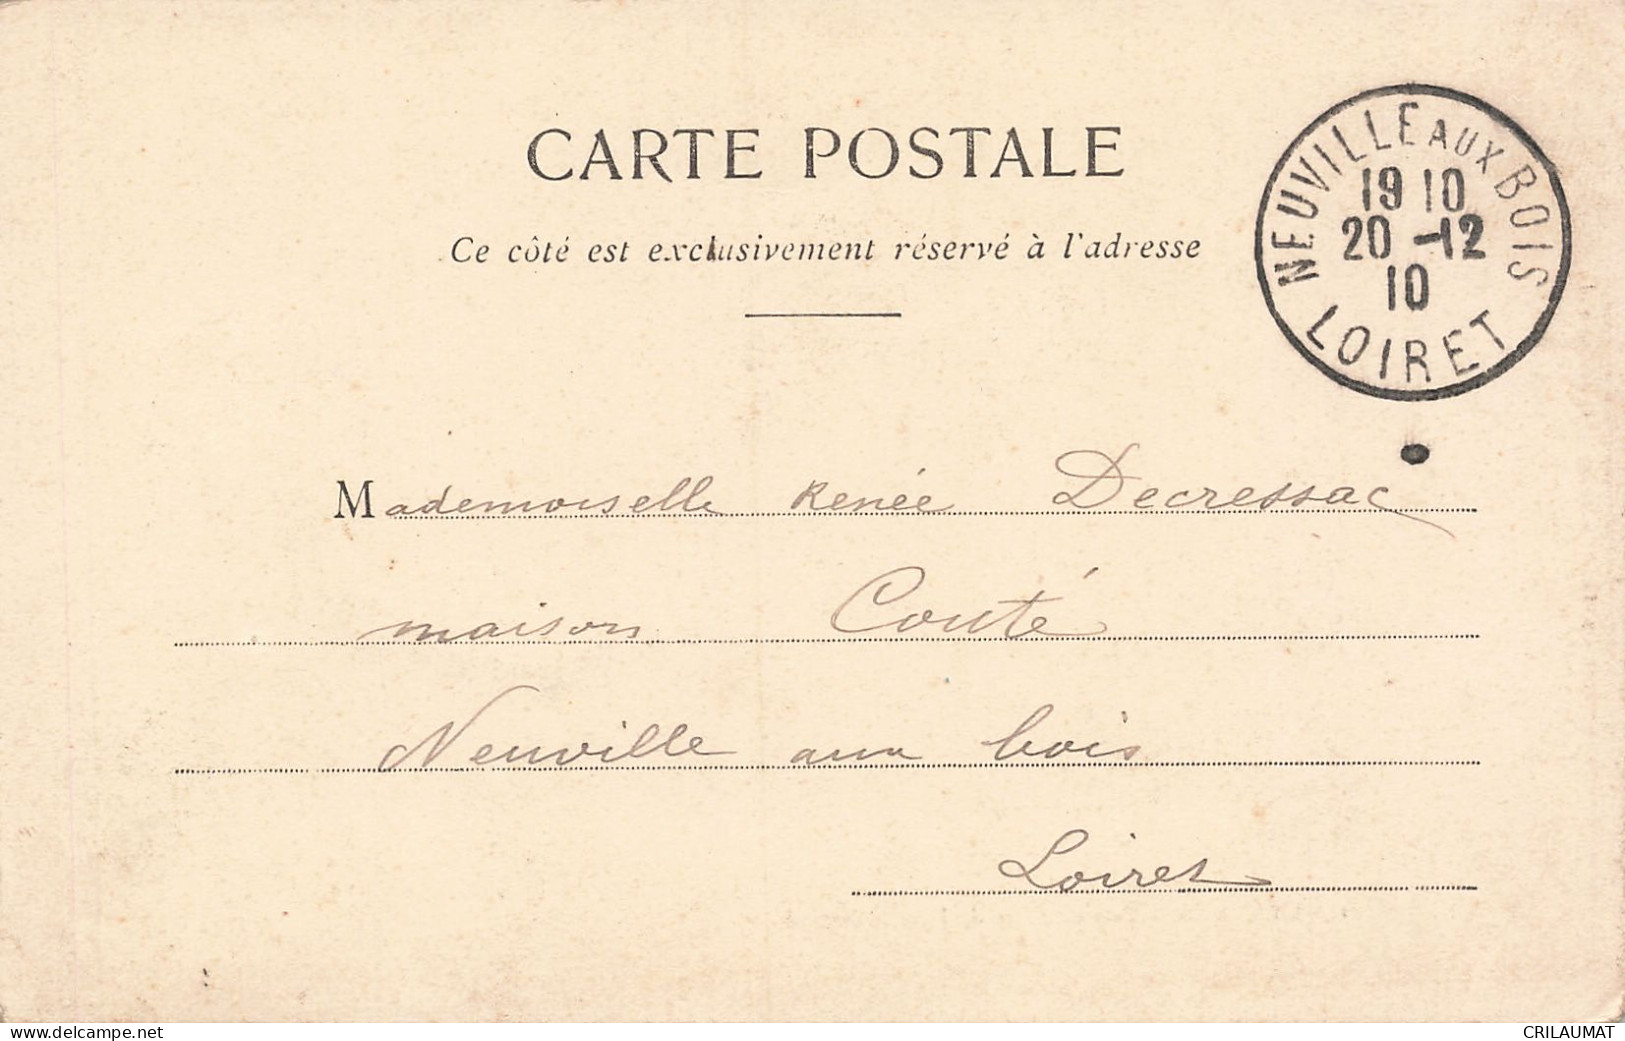 CARTE POSTALE
Ce côté est exclusivement réservé à l'adresse
NEUVILLE AUX BOIS
19 10
20 -12
10
LOIRET
Mademoiselle Renée Decressac
maison Couté
Neuville aux bois
Loiret
www.delcampe.net
CRILAUMAT